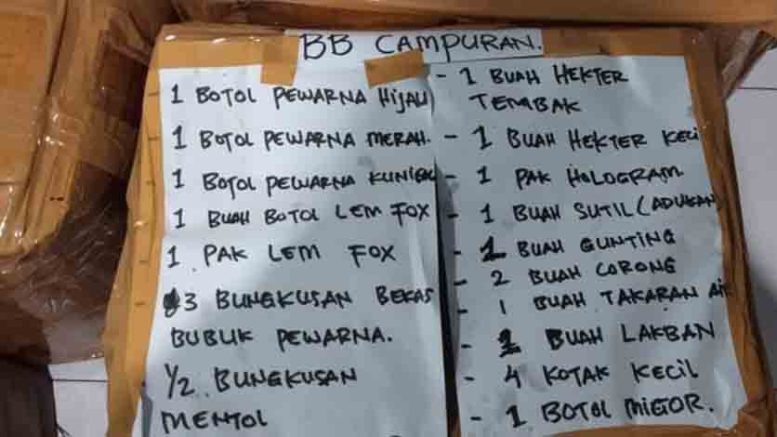 BB CAMPURAN.
1 BOTOL PEWARNA HIJAU
1 BOTOL PEWARNA MERAH.
1 BOTOL PEWARNA KUNING
1 BUAH BOTOL LEM FOX
1 PAK LEM FOX
3 BUNGKUSAN BEKAS
BUBUK PEWARNA.
1/2 BUNGKUSAN
MENTOL
- 1 BUAH HEKTER
TEMBAK
- 1 BUAH HEKTER KECIL
- 1 PAK HOLOGRAM
- 1 BUAH SUTIL (ADUKAN)
- 1 BUAH GUNTING
- 2 BUAH CORONG
- 1 BUAH TAKARAN AIR
- 1 BUAH LAKBAN
- 4 KOTAK KECIL
- 1 BOTOL MIGOR.